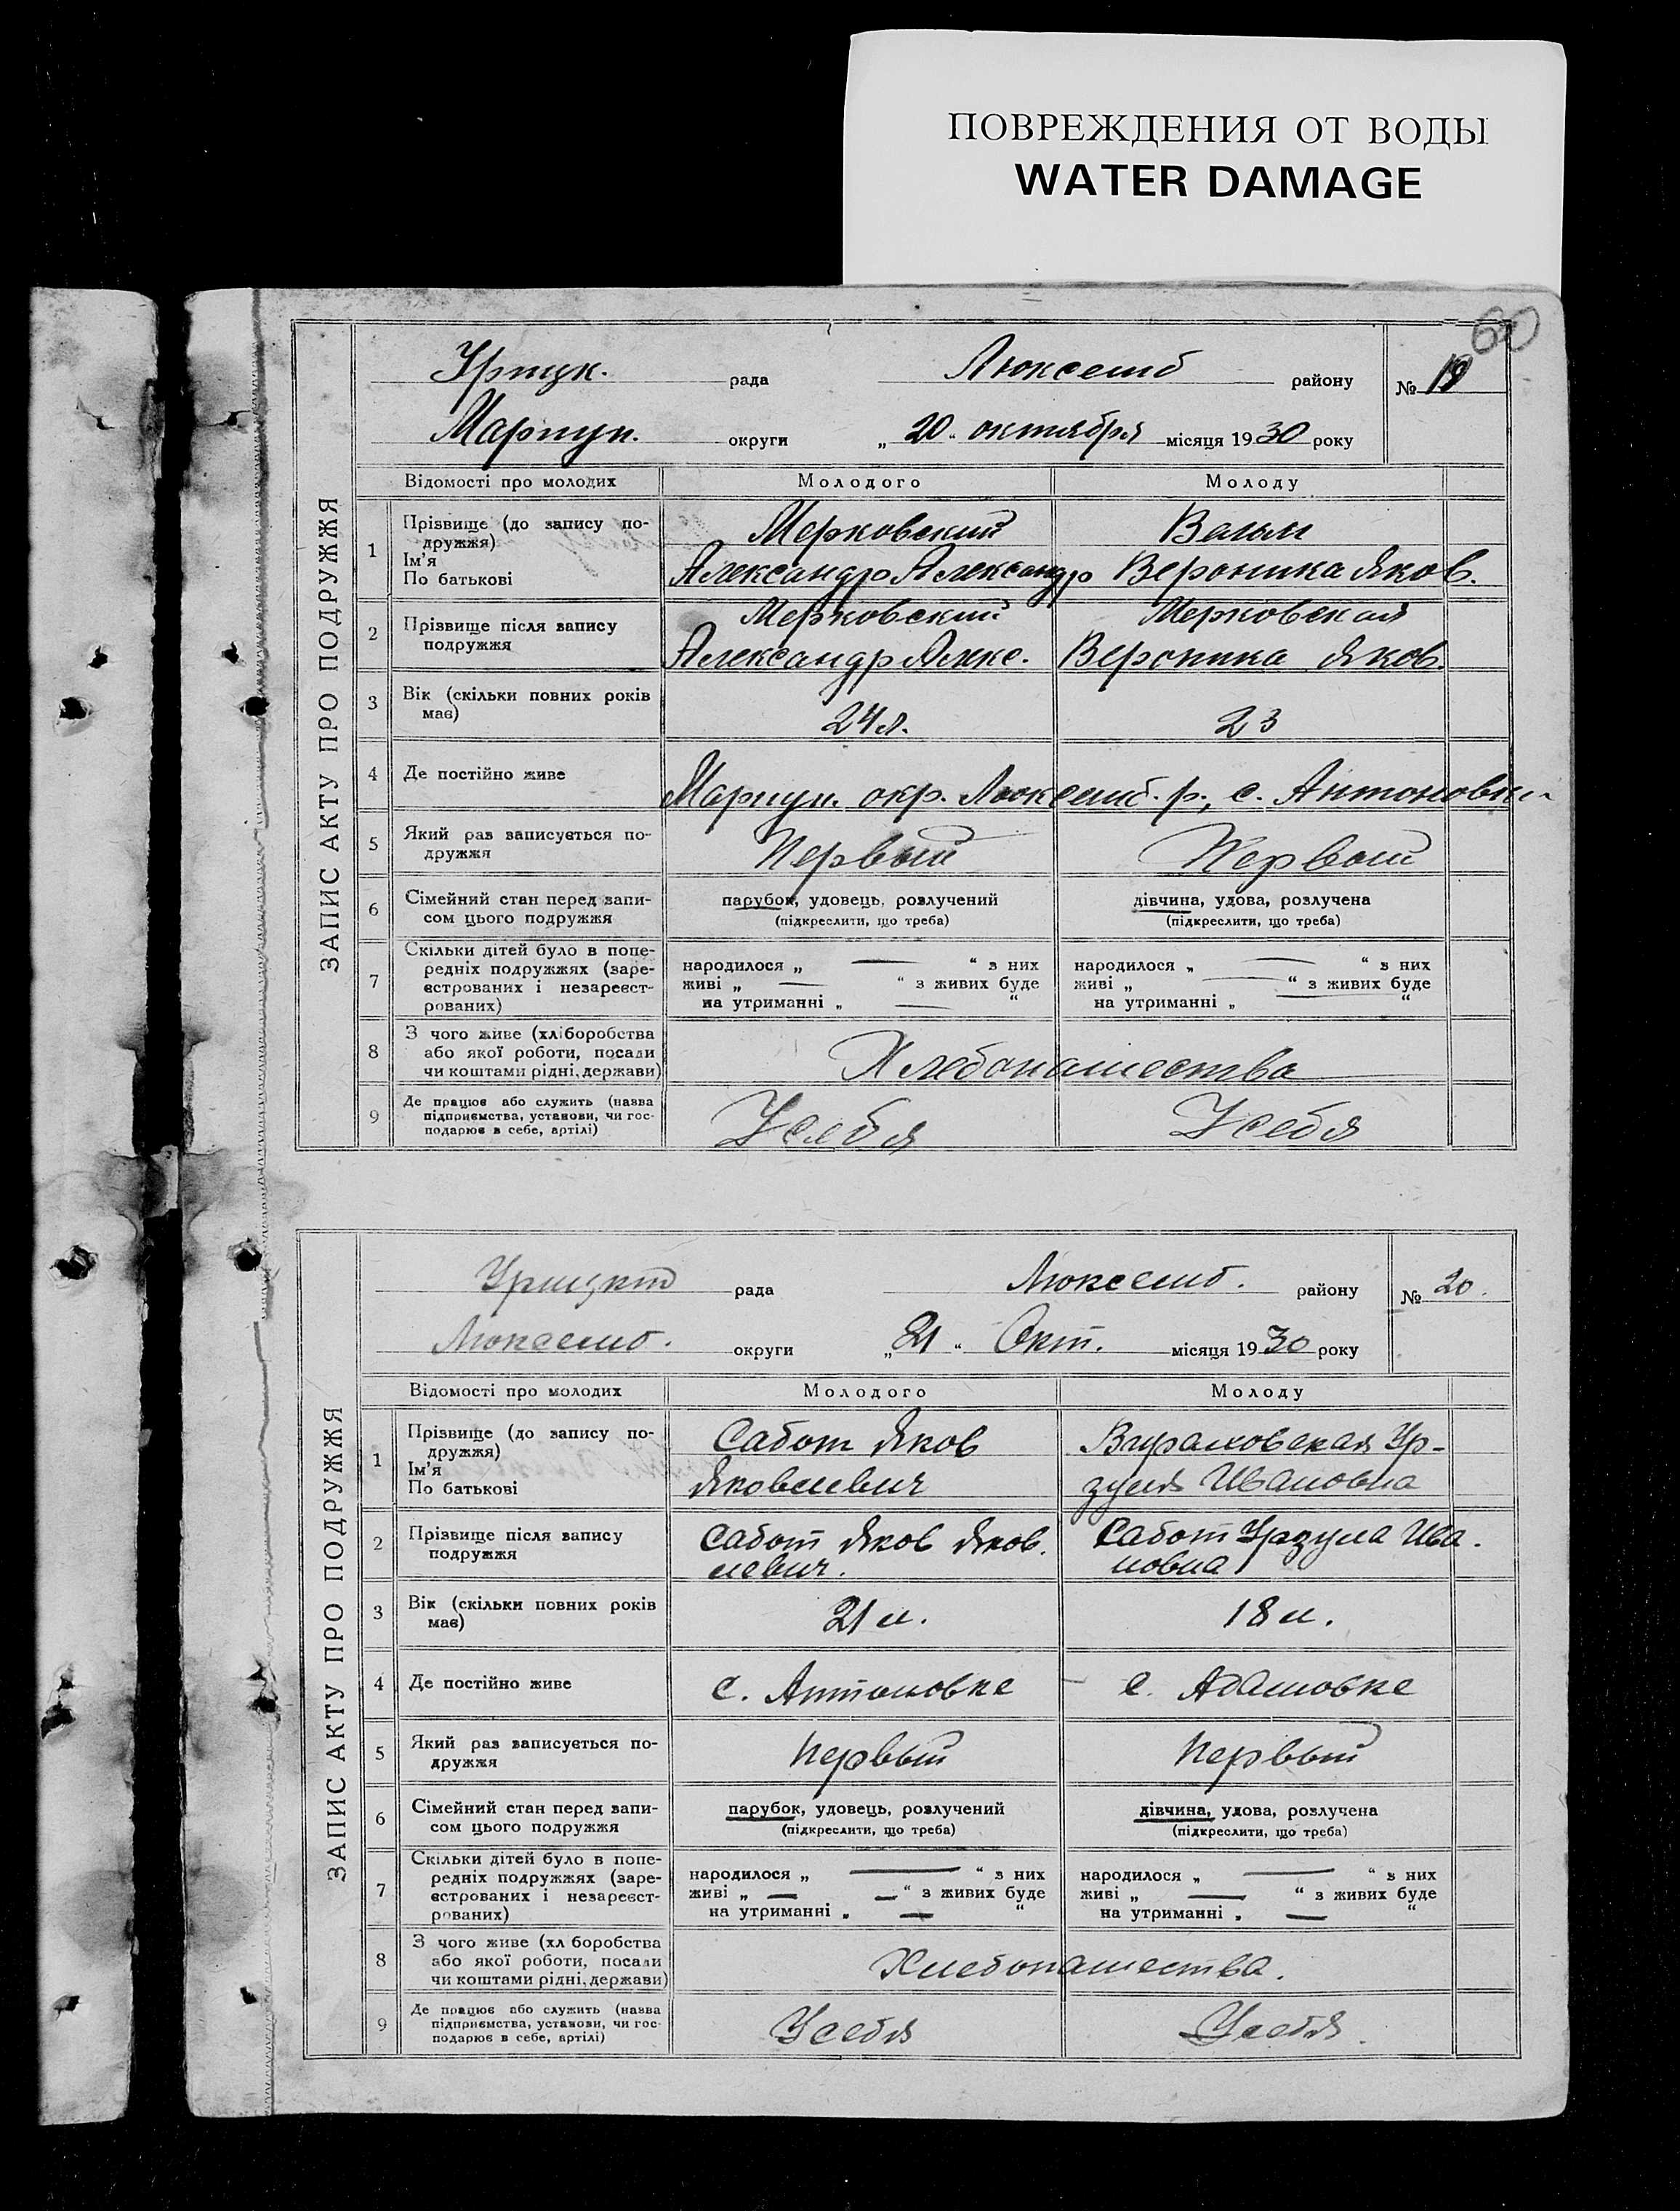 ПОВРЕЖДЕНИЯ ОТ ВОДЫ
WATER DAMAGE
60
ЗАПИС АКТУ ПРО ПОДРУЖЖЯ
Урицк. рада Люксемб району № 19
Мариуп. округи „20“ октября місяця 1930 року
Відомості про молодих Молодого Молоду
1 Прізвище (до запису по-
дружжя)
Ім'я
По батькові
Мерковский
Александр Александр Вероника Яков.
2 Прізвище після запису
подружжя
Мерковский Мерковская
Александр Алекс. Вероника Яков.
3 Вік (скільки повних років
має)
24 л. 23
4 Де постійно живе
Мариуп. окр. Люксемб. р., с. Антоновки
5 Який раз записується по-
дружжя
Первый Первый
6 Сімейний стан перед запи-
сом цього подружжя
парубок, удовець, розлучений дівчина, удова, розлучена
(підкреслити, що треба) (підкреслити, що треба)
7 Скільки дітей було в попе-
редніх подружжях (заре-
єстрованих і незареєст-
рованих)
народилося „ — “ з них народилося „ — “ з них
живі „ — “ з живих буде живі „ — “ з живих буде
на утриманні „ — “ на утриманні „ — “
8 З чого живе (хліборобства
або якої роботи, посади
чи коштами рідні, держави)
Хлебопашества
9 Де працює або служить (назва
підприємства, установи, чи гос-
подарює в себе, артілі)
У себя У себя
ЗАПИС АКТУ ПРО ПОДРУЖЖЯ
Урицкий рада Люксемб. району № 20.
Люксемб. округи „21“ Окт. місяця 1930 року
Відомості про молодих Молодого Молоду
1 Прізвище (до запису по-
дружжя)
Ім'я
По батькові
Сабот Яков Ур-
Яковлевич зуля Ивановна
2 Прізвище після запису
подружжя
Сабот Яков Яков. Сабот Урзула Ива.
левич. новна
3 Вік (скільки повних років
має)
21 л. 18 л.
4 Де постійно живе
с. Антоновке с. Адамовке
5 Який раз записується по-
дружжя
первый первый
6 Сімейний стан перед запи-
сом цього подружжя
парубок, удовець, розлучений дівчина, удова, розлучена
(підкреслити, що треба) (підкреслити, що треба)
7 Скільки дітей було в попе-
редніх подружжях (заре-
єстрованих і незареєст-
рованих)
народилося „ — “ з них народилося „ — “ з них
живі „ — — “ з живих буде живі „ — “ з живих буде
на утриманні „ — “ на утриманні „ — “
8 З чого живе (хл боробства
або якої роботи, посади
чи коштами рідні, держави)
Хлебопашества.
9 Де працює або служить (назва
підприємства, установи, чи гос-
подарює в себе, артілі)
У себя У себя.